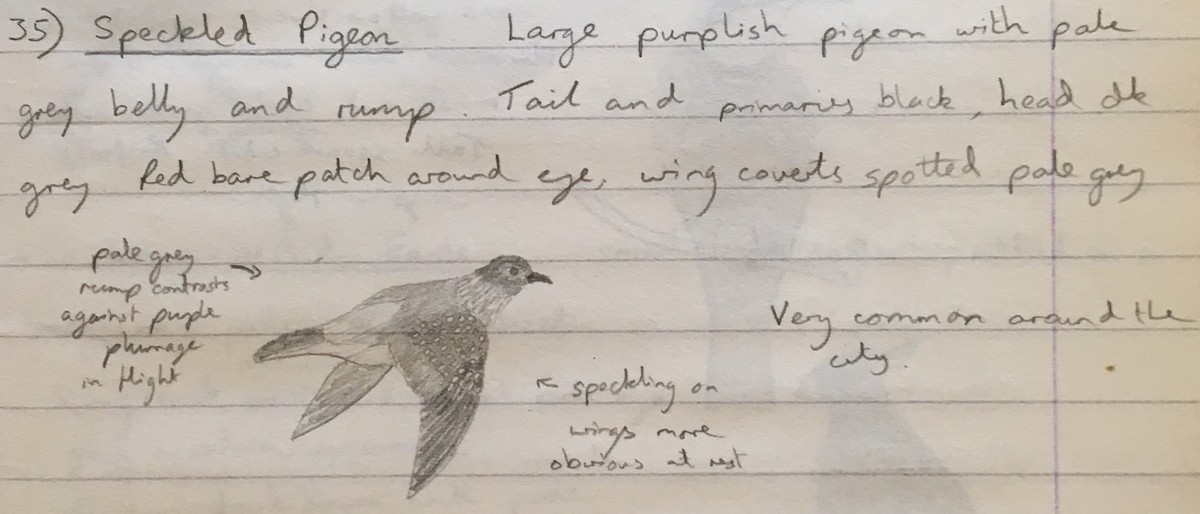 35) Speckled Pigeon Large purplish pigeon with pale
grey belly and rump. Tail and primaries black, head dk
grey. Red bare patch around eye, wing coverts spotted pale grey
pale grey
rump contrasts
against purple
plumage
in flight
Very common around the
city.
speckling on
wings more
obvious at rest